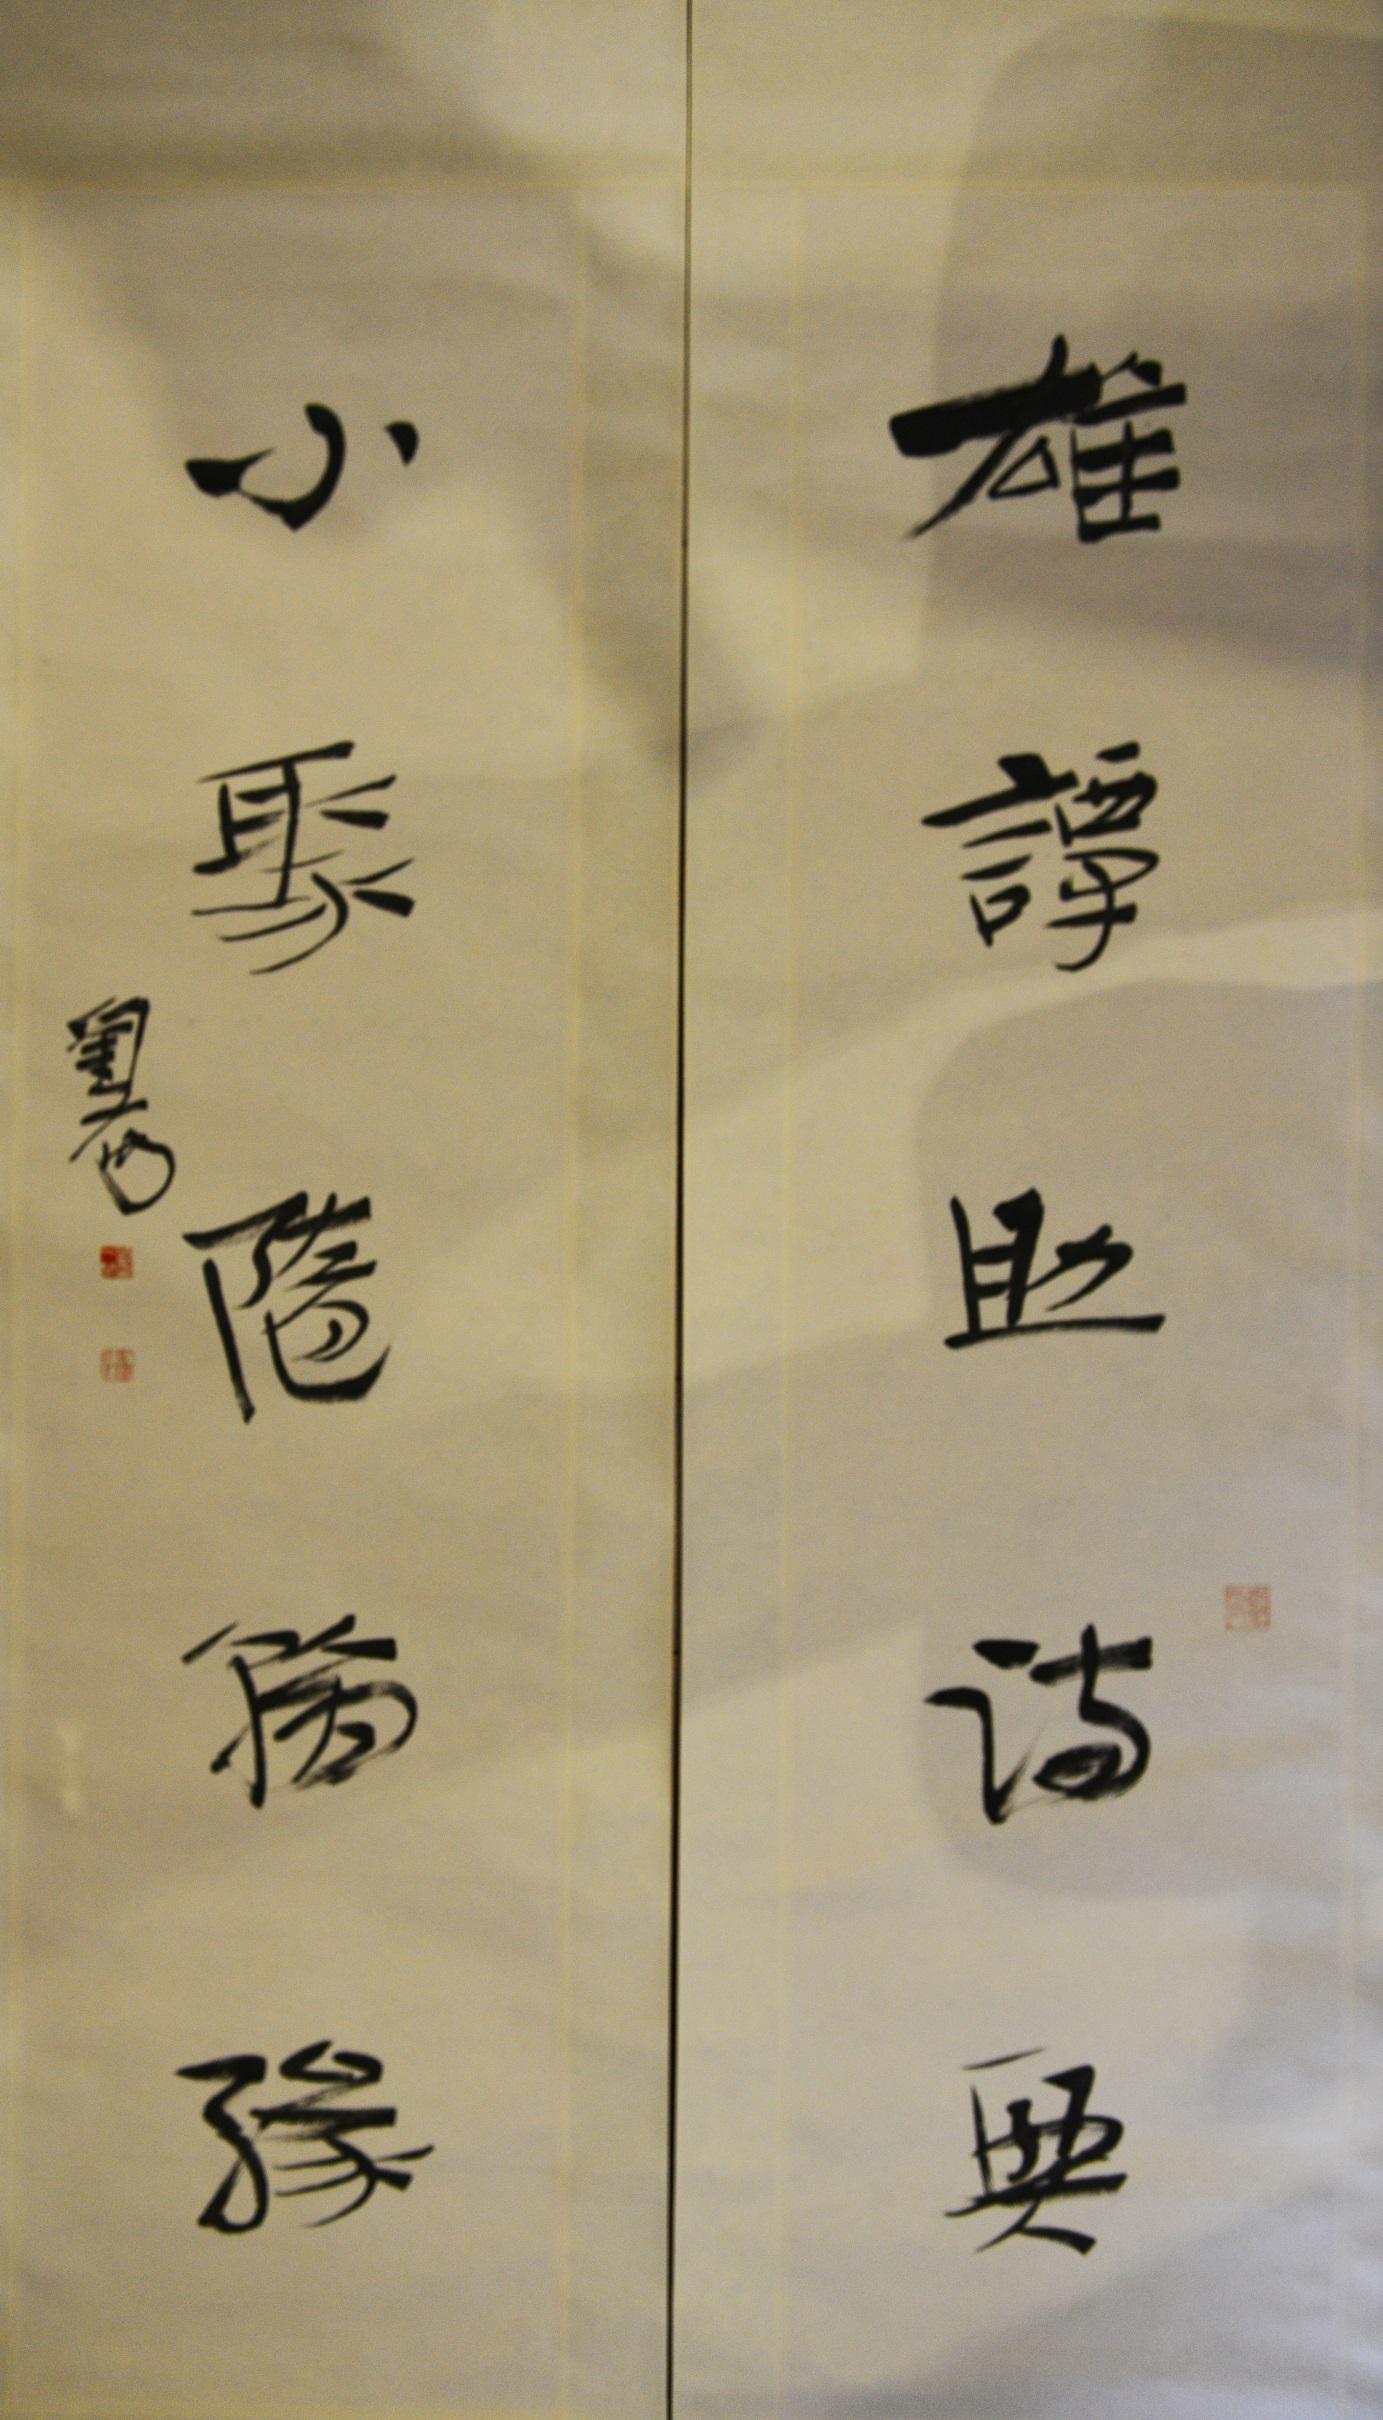 雄譚助詩興
小聚隨勝緣